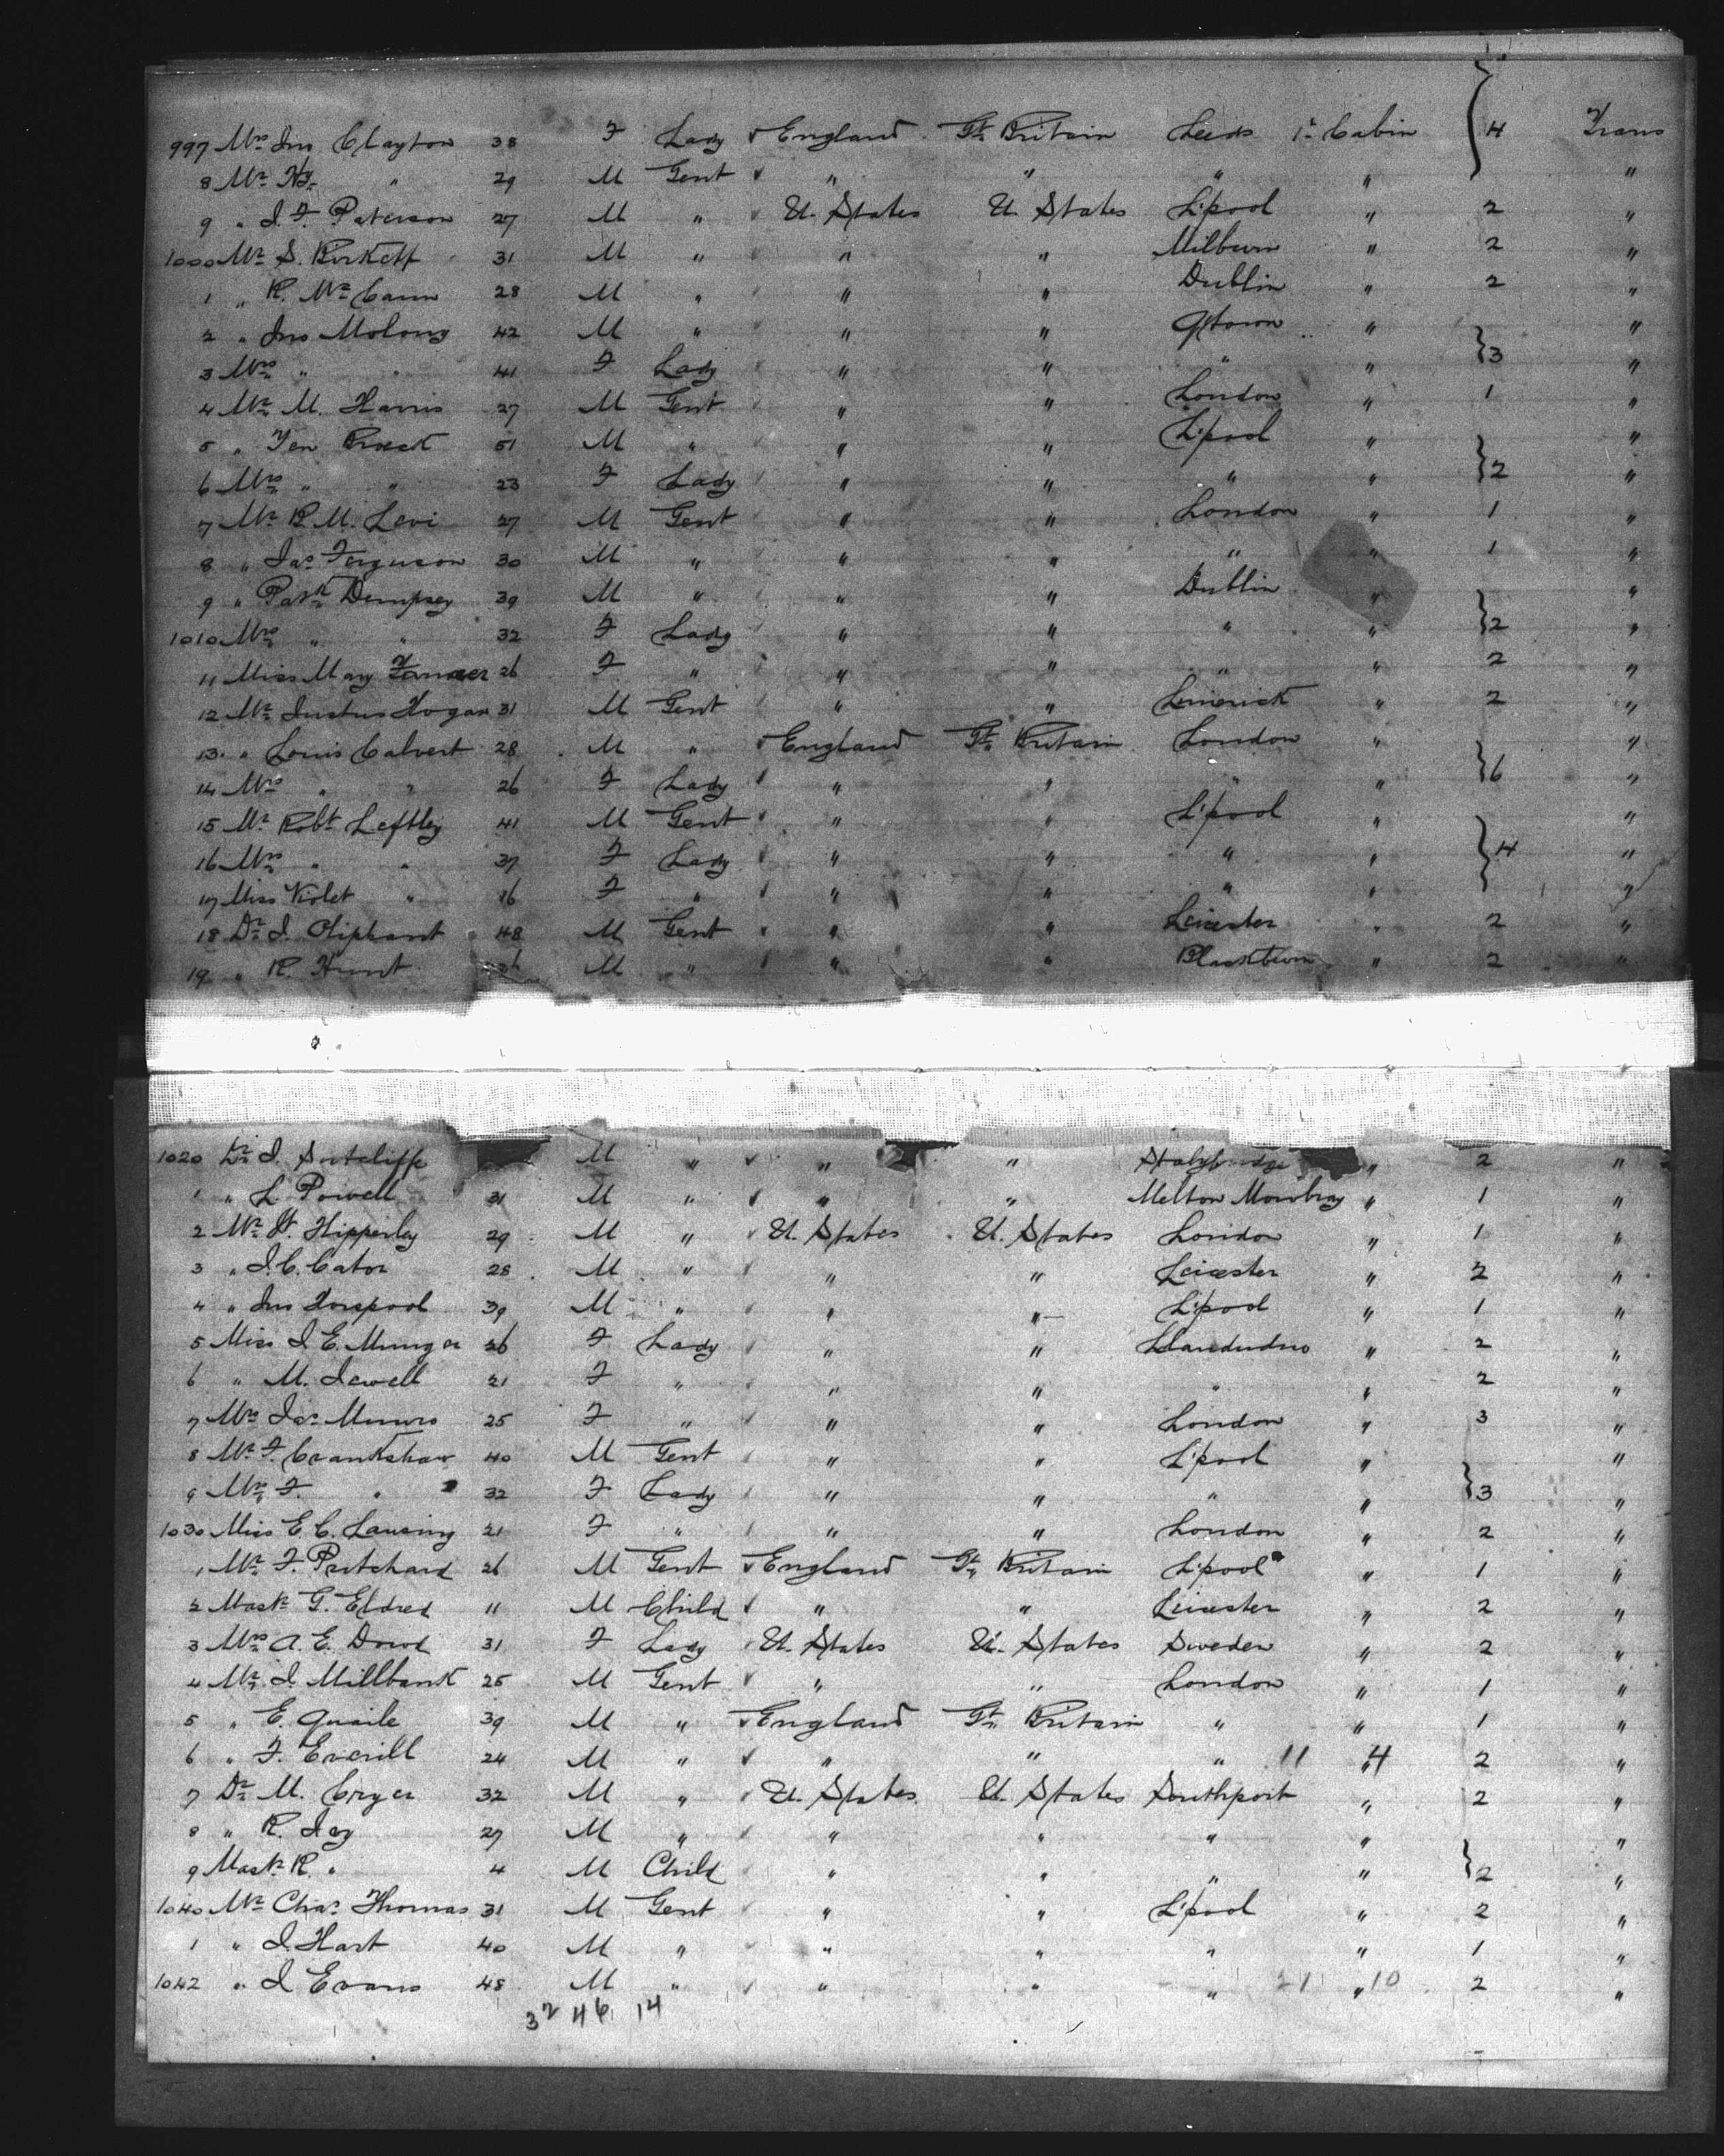 997 Mrs Jno Clayton 38 F Lady ✓ England Gt Britain Leeds 1st Cabin } 4 Trans
8 Mr Hy " 29 M Gent ✓ " " " " "
9 " J. F. Paterson 27 M " ✓ U. States U. States L'pool " 2 "
1000 Mr S. Birkett 31 M " " " Milburn " 2 "
1 " R. McCann 28 M " " " Dublin " 2 "
2 " Jno Molony 42 M " " " Q'town " "
3 Mrs " " 41 F Lady " " " " } 3 "
4 Mr M. Harris 27 M Gent " " London " 1 "
5 " Ten Broeck 51 M " " " L'pool " "
6 Mrs " " 23 F Lady " " " " } 2 "
7 Mr B. M. Levi 27 M Gent " " London " 1 "
8 " Jas Ferguson 30 M " " " " " 1 "
9 " Patk Dempsey 39 M " " " Dublin " "
1010 Mrs " " 32 F Lady " " " " } 2 "
11 Miss Mary 26 F " " " " " 2 "
12 Mr Justus Hogan 31 M Gent " " Limerick " 2 "
13 " Louis Calvert 28 M " ✓ England Gt Britain London " "
14 Mrs " " 26 F Lady ✓ " " " " } 6 "
15 Mr Robt Leftley 41 M Gent ✓ " " L'pool " "
16 Mrs " " 37 F Lady ✓ " " " " } 4 "
17 Miss Violet " 16 F " ✓ " " " " "
18 Dr J. Oliphant 48 M Gent ✓ " " Leicester " 2 "
19 " R. Hunt M " ✓ " " Blackburn " 2 "
1020 Dr J. Sutcliffe M " ✓ " " Stalybridge " 2 "
1 " L. Powell 31 M " ✓ " " Melton Mowbray " 1 "
2 Mr W. Hipperley 29 M " ✓ U. States U. States London " 1 "
3 " J. C. Cator 28 M " ✓ " " Leicester " 2 "
4 " Jno Horspool 39 M " ✓ " " L'pool " 1 "
5 Miss J. E. Munger 26 F Lady ✓ " " Llandudno " 2 "
6 " M. Jewell 21 F " ✓ " " " " 2 "
7 Mrs Jas Munro 25 F " ✓ " " London " 3 "
8 Mr F. Crankshaw 40 M Gent " " L'pool " "
9 Mrs F. " 32 F Lady ✓ " " " " } 3 "
1030 Miss E. C. Lansing 21 F " ✓ " " London " 2 "
1 Mr F. Pritchard 26 M Gent ✓ England Gt Britain L'pool " 1 "
2 Mastr G. Eldred 11 M Child ✓ " " Leicester " 2 "
3 Mrs A. E. Dowd 31 F Lady ✓ U. States U. States Sweden " 2 "
4 Mr J. Millbank 25 M Gent ✓ " " London " 1 "
5 " E. Quaile 39 M " ✓ England Gt Britain " " 1 "
6 " F. Everill 24 M " ✓ " " " 11 " 4 2 "
7 Dr M. Cryer 32 M " ✓ U. States U. States Southport " 2 "
8 " R. Jay 27 M " ✓ " " " " "
9 Mastr R. " 4 M Child ✓ " " " " } 2 "
1040 Mr Chas Thomas 31 M Gent ✓ " " L'pool " 2 "
1 " J. Hart 40 M " ✓ " " " " 1 "
1042 " J Evans 48 M " ✓ " " " 21 " 10 2 "
32 46 14